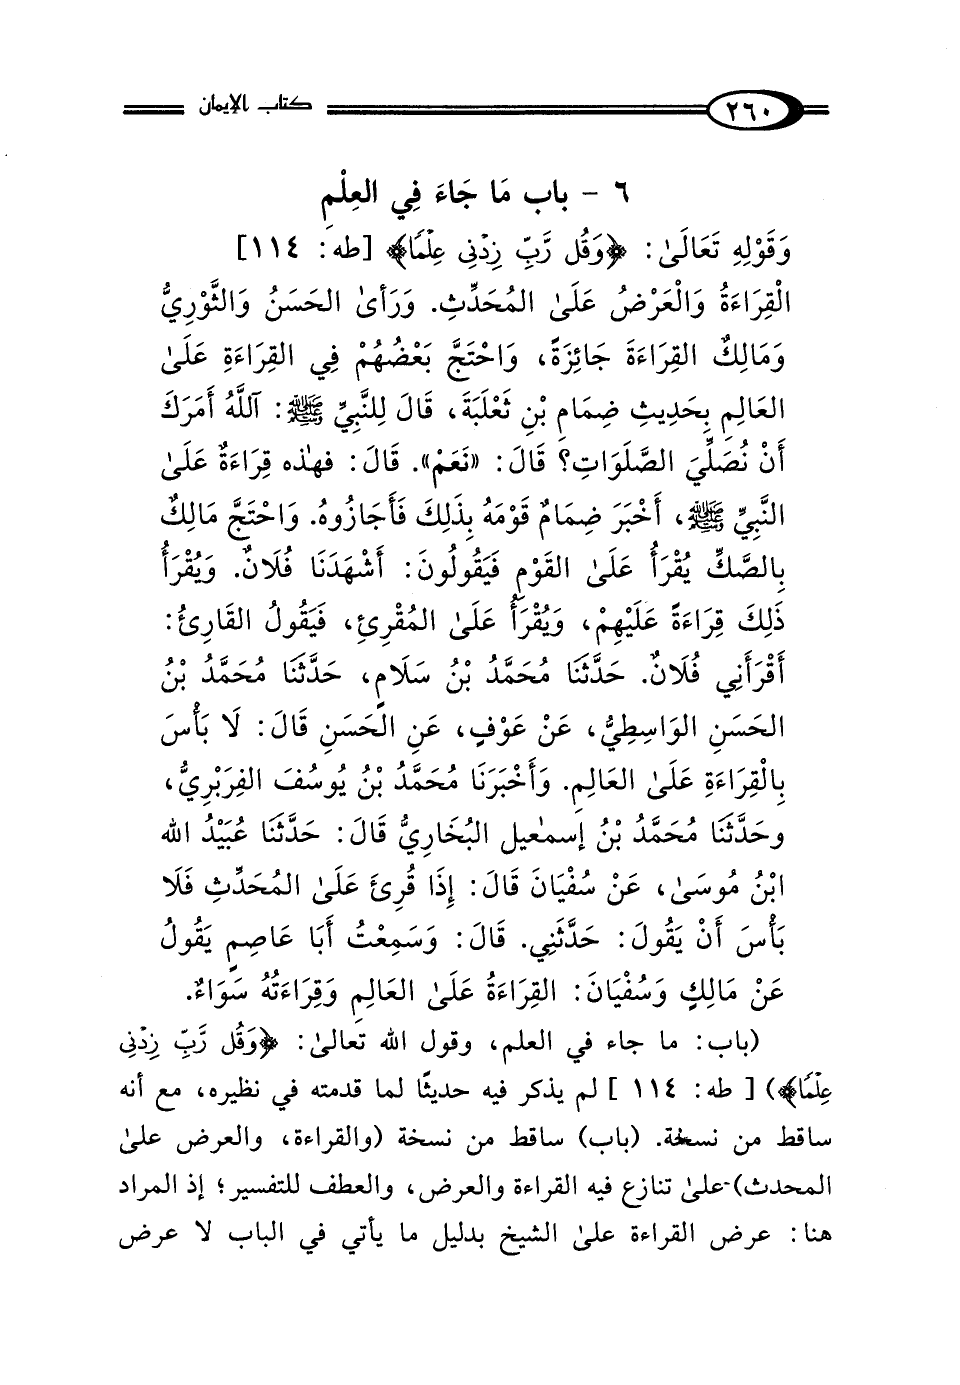 ٢٦٠ كتاب الإيمان
٦ - باب مَا جَاءَ فِي العِلْمِ
وَقَوْلِهِ تَعَالَىٰ: ﴿وَقُل رَّبِّ زِدْنِى عِلْمًا﴾ [طه: ١١٤]
الْقِرَاءَةُ وَالْعَرْضُ عَلَىٰ المُحَدِّثِ. وَرَأىٰ الحَسَنُ وَالثَّوْرِيُّ
وَمَالِكٌ القِرَاءَةَ جَائِزَةً، وَاحْتَجَّ بَعْضُهُمْ فِي القِرَاءَةِ عَلَىٰ
العَالِمِ بِحَدِيثِ ضِمَامِ بْنِ ثَعْلَبَةَ، قَالَ لِلنَّبِيِّ ﷺ: آللَّهُ أَمَرَكَ
أَنْ نُصَلِّيَ الصَّلَوَاتِ؟ قَالَ: «نَعَمْ». قَالَ: فهٰذه قِرَاءَةٌ عَلَىٰ
النَّبِيِّ ﷺ، أَخْبَرَ ضِمَامٌ قَوْمَهُ بِذَلِكَ فَأَجَازُوهُ. وَاحْتَجَّ مَالِكٌ
بِالصَّكِّ يُقْرَأُ عَلَىٰ القَوْمِ فَيَقُولُونَ: أَشْهَدَنَا فُلَانٌ. وَيُقْرَأُ
ذَلِكَ قِرَاءَةً عَلَيْهِمْ، وَيُقْرَأُ عَلَىٰ المُقْرِئِ، فَيَقُولُ القَارِئُ:
أَقْرَأَنِي فُلَانٌ. حَدَّثَنَا مُحَمَّدُ بْنُ سَلَامٍ، حَدَّثَنَا مُحَمَّدُ بْنُ
الحَسَنِ الوَاسِطِيُّ، عَنْ عَوْفٍ، عَنِ الحَسَنِ قَالَ: لَا بَأْسَ
بِالْقِرَاءَةِ عَلَىٰ العَالِمِ. وَأَخْبَرَنَا مُحَمَّدُ بْنُ يُوسُفَ الفِرَبْرِيُّ،
وحَدَّثَنَا مُحَمَّدُ بْنُ إسمٰعيل البُخَارِيُّ قَالَ: حَدَّثَنَا عُبَيْدُ الله
ابْنُ مُوسَىٰ، عَنْ سُفْيَانَ قَالَ: إِذَا قُرِئَ عَلَىٰ المُحَدِّثِ فَلَا
بَأْسَ أَنْ يَقُولَ: حَدَّثَنِي. قَالَ: وَسَمِعْتُ أَبَا عَاصِمٍ يَقُولُ
عَنْ مَالِكٍ وَسُفْيَانَ: القِرَاءَةُ عَلَىٰ العَالِمِ وَقِرَاءَتُهُ سَوَاءٌ.
(باب: ما جاء في العلم، وقول الله تعالىٰ: ﴿وَقُل رَّبِّ زِدْنِى
عِلْمًا﴾) [ طه: ١١٤ ] لم يذكر فيه حديثًا لما قدمته في نظيره، مع أنه
ساقط من نسخة. (باب) ساقط من نسخة (والقراءة، والعرض علىٰ
المحدث) علىٰ تنازع فيه القراءة والعرض، والعطف للتفسير؛ إذ المراد
هنا: عرض القراءة علىٰ الشيخ بدليل ما يأتي في الباب لا عرض